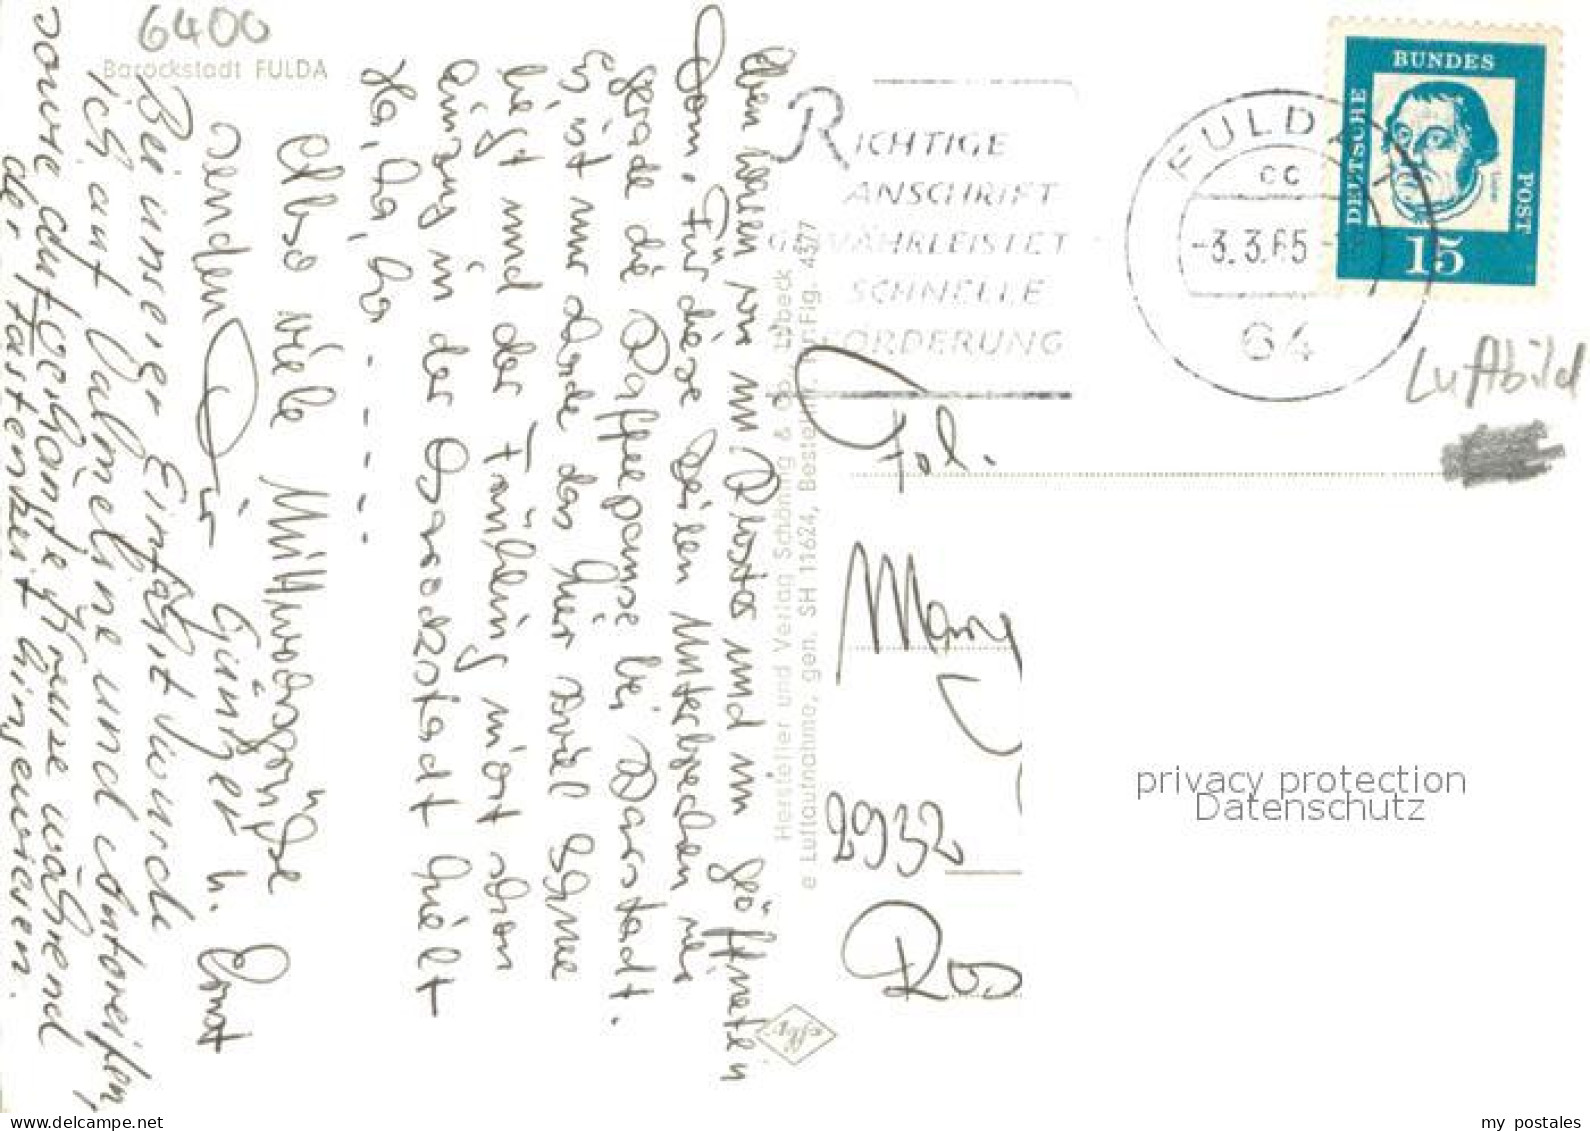 6400
Barockstadt FULDA
Eben waren wir im Kloster und im geöffneten
Dom. Für diese Zeilen unterbrechen wir
gerade die Kaffeepause bei Daarstadt.
Es ist nur Ende das hier soviel Schnee
liegt und der Frühling nicht schon
einzug in der Barockstadt hielt
Ha, ha, ha - - - - - -
Also viele Mittwochsgrüße
senden Dir Günter u. Ernst
Bei unserer Einfahrt wurde
ich auf Palmeline und
sowie Krause während
der Fastenzeit hingewiesen.
Hersteller und Verlag Schöning & Co., Lübeck
Luftaufnahme, gen. SH 11624, Bestellnr.: Fig. 4377
RICHTIGE
ANSCHRIFT
GEWÄHRLEISTET
SCHNELLE
BEFÖRDERUNG
FULDA 1
cc
-3.3.65-
64
DEUTSCHE
BUNDES
POST
Luther
15
Luftbild
Frl.
2932
privacy protection
Datenschutz
www.delcampe.net
my_postales